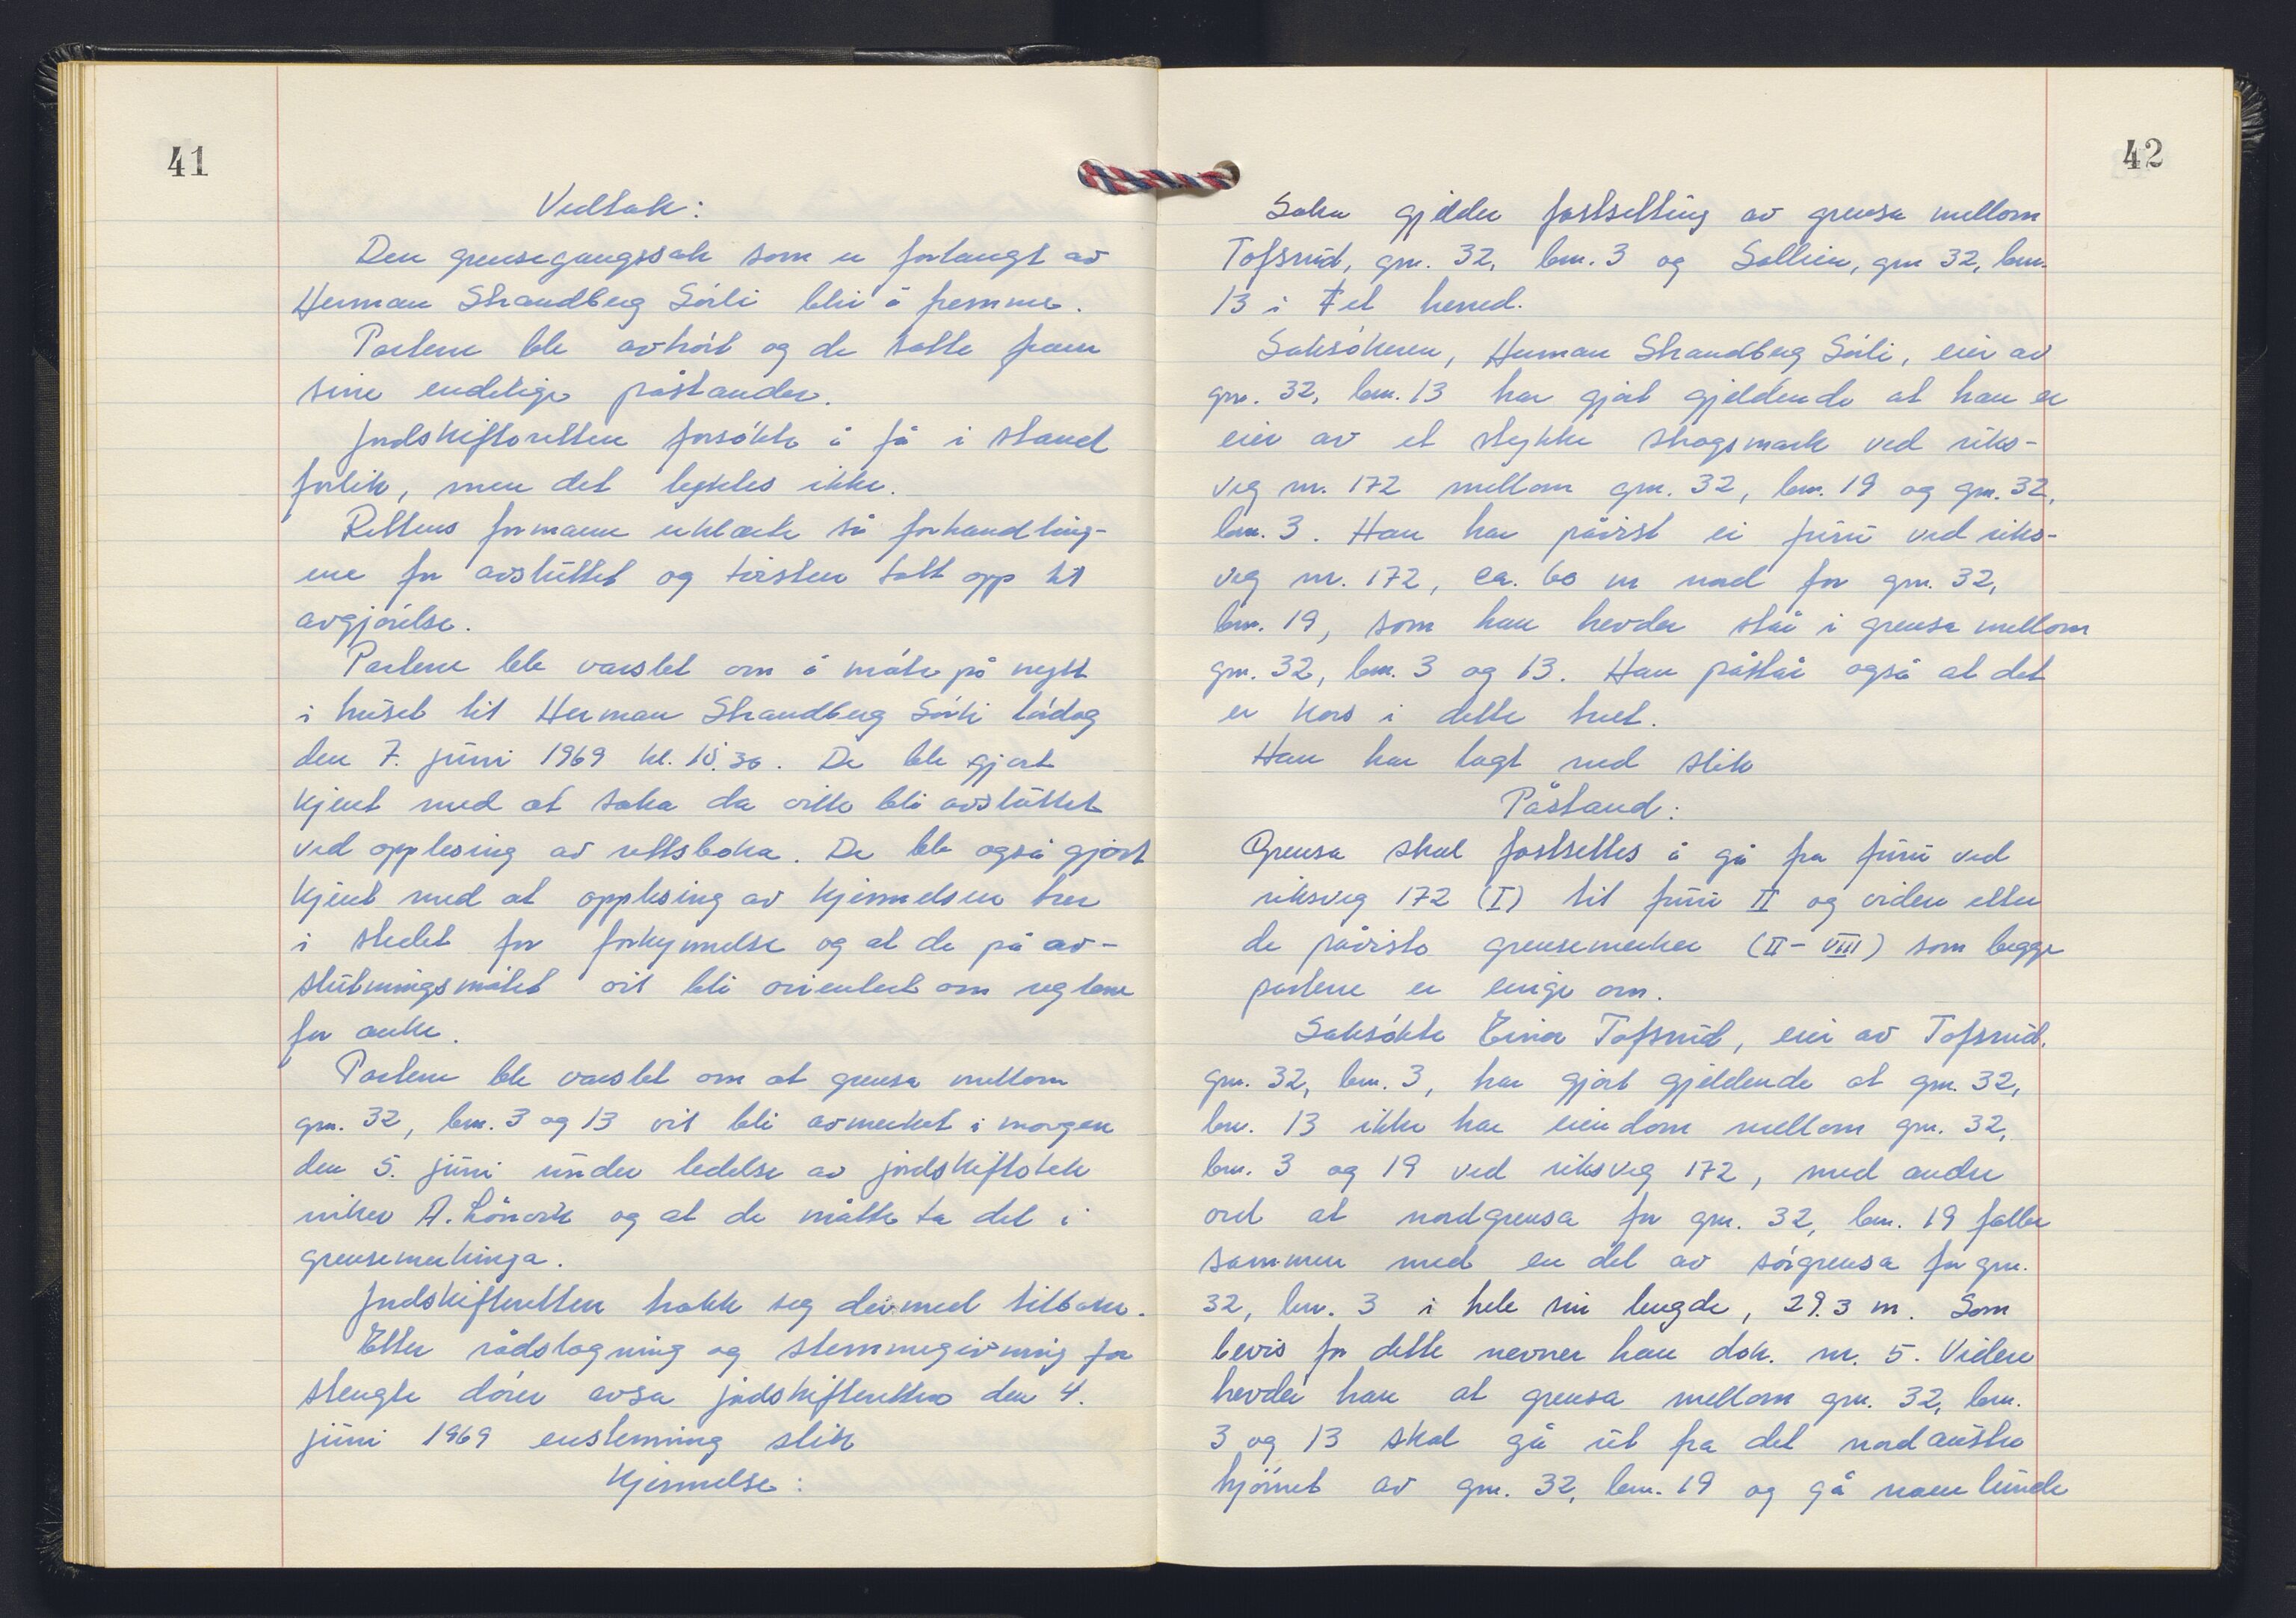 41
Vedtak:
Den grensegangssak som er forlangt av
Herman Strandberg Sörli blir å fremme.
Partene ble avhört og de satte fram
sine endelige påstander.
Jordskifteretten forsökte å få i stand
forlik, men det lyktes ikke.
Rettens formann erklærte så forhandling-
ene for avsluttet og tvisten tatt opp til
avgjörelse.
Partene ble varslet om å möte på nytt
i huset til Herman Strandberg Sörli lördag
den 7. juni 1969 kl. 15.30. De ble gjort
kjent med at saka da ville bli avsluttet
ved opplesing av rettsboka. De ble også gjort
kjent med at opplesing av kjennelsen trer
i stedet for forkynnelse og at de på av-
slutningsmötet vil bli orientert om reglene
for anke.
Partene ble varslet om at grensa mellom
gnr. 32, bnr. 3 og 13 vil bli avmerket i morgen
den 5. juni under ledelse av jordskiftetek
niker A. Lönvik og at de måtte ta del i
grensemerkinga.
Jordskifteretten trakk seg dermed tilbake.
Etter rådslagning og stemmegivning for
stengte dörer avsa jordskifteretten den 4.
juni 1969 enstemmig slik
Kjennelse:
42
Saka gjelder fastsetting av grensa mellom
Tofsrud, gnr. 32, bnr. 3 og Sollien, gnr 32, bnr.
13 i Fet herred.
Saksökeren, Herman Strandberg Sörli, eier av
gnr. 32, bnr. 13 har gjort gjeldende at han er
eier av et stykke skogsmark ved riks-
veg nr. 172 mellom gnr. 32, bnr. 19 og gnr. 32,
bnr. 3. Han har påvist ei furu ved riks-
veg nr. 172, ca. 60 m nord for gnr. 32,
bnr. 19, som han hevder står i grensa mellom
gnr. 32, bnr. 3 og 13. Han påstår også at det
er kors i dette treet.
Han har lagt ned slik
Påstand:
Grensa skal fastsettes å gå fra furu ved
riksveg 172 (I) til furu II og videre etter
de påviste grensemerker (II - VIII) som begge
partene er enige om.
Saksökte Einar Tofsrud, eier av Tofsrud,
gnr. 32, bnr. 3, har gjort gjeldende at gnr. 32,
bnr. 13 ikke har eiendom mellom gnr. 32,
bnr. 3 og 19 ved riksveg 172, med andre
ord at nordgrensa for gnr. 32, bnr. 19 faller
sammen med en del av sörgrensa for gnr.
32, bnr. 3 i hele sin lengde, 29.3 m. Som
bevis for dette nevner han dok. nr. 5. Videre
hevder han at grensa mellom gnr. 32, bnr.
3 og 13 skal gå ut fra det nordaustre
hjörnet av gnr. 32, bnr. 19 og gå noenlunde